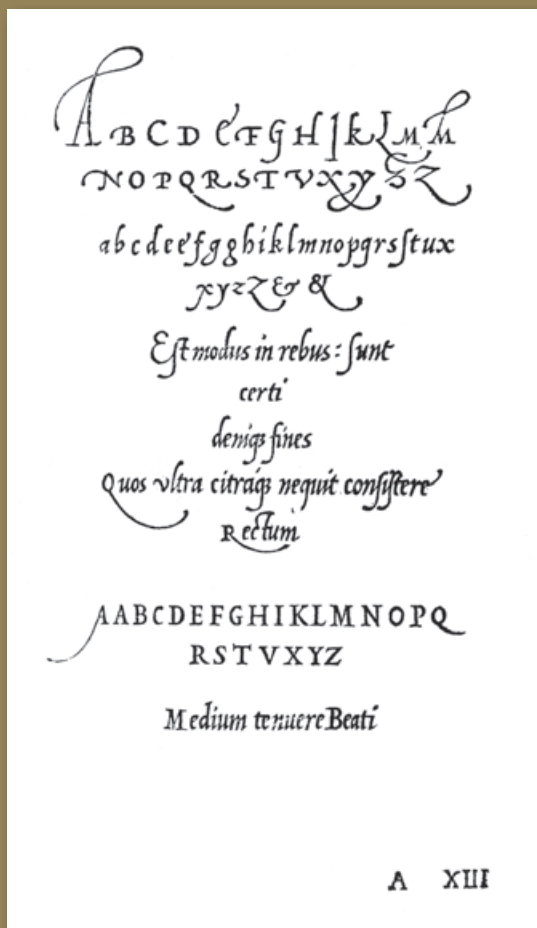 A B C D E F G H I K L M M
N O P Q R S T V X Y Z Z
a b c d e e f g g h i k l m n o p q r s ſ t u x
x y z Z & &
Eſt modus in rebus : ſunt
certi
deniqꝫ fines
Quos vltra citraqꝫ nequit conſiſtere
Rectum
A A B C D E F G H I K L M N O P Q
R S T V X Y Z
Medium tenuere Beati
A XIII